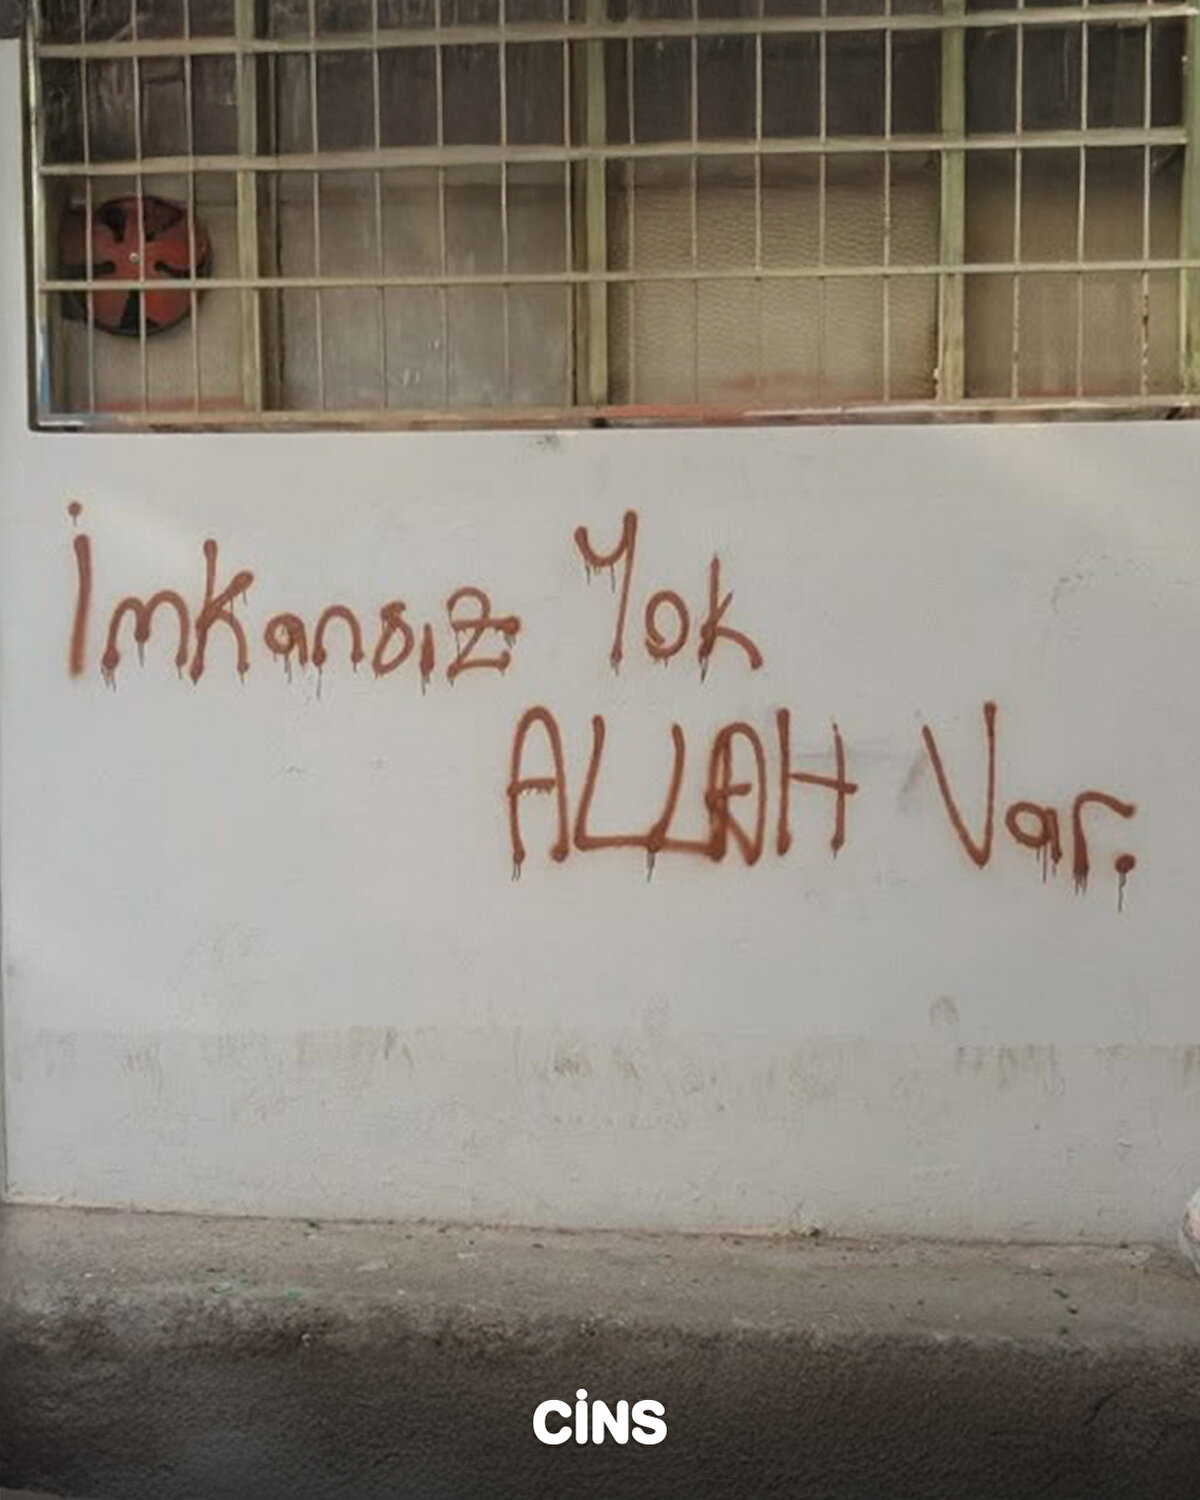 İmkansız Yok
ALLAH Var.
CİNS